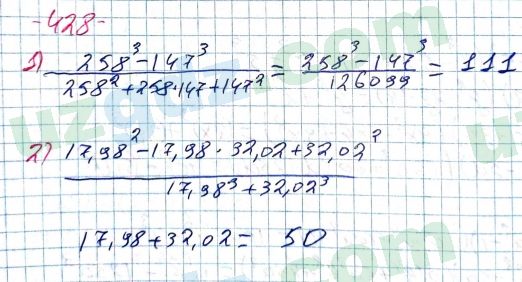 -428-
1) (258³-147³)/(258²+258·147+147²) = (258³-147³)/126099 = 111
2) (17,98²-17,98·32,02+32,02²)/(17,98³+32,02³)
17,98+32,02= 50
uzgdz.com